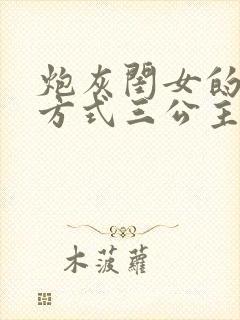 炮灰闺女的
方式三公主
木菠萝